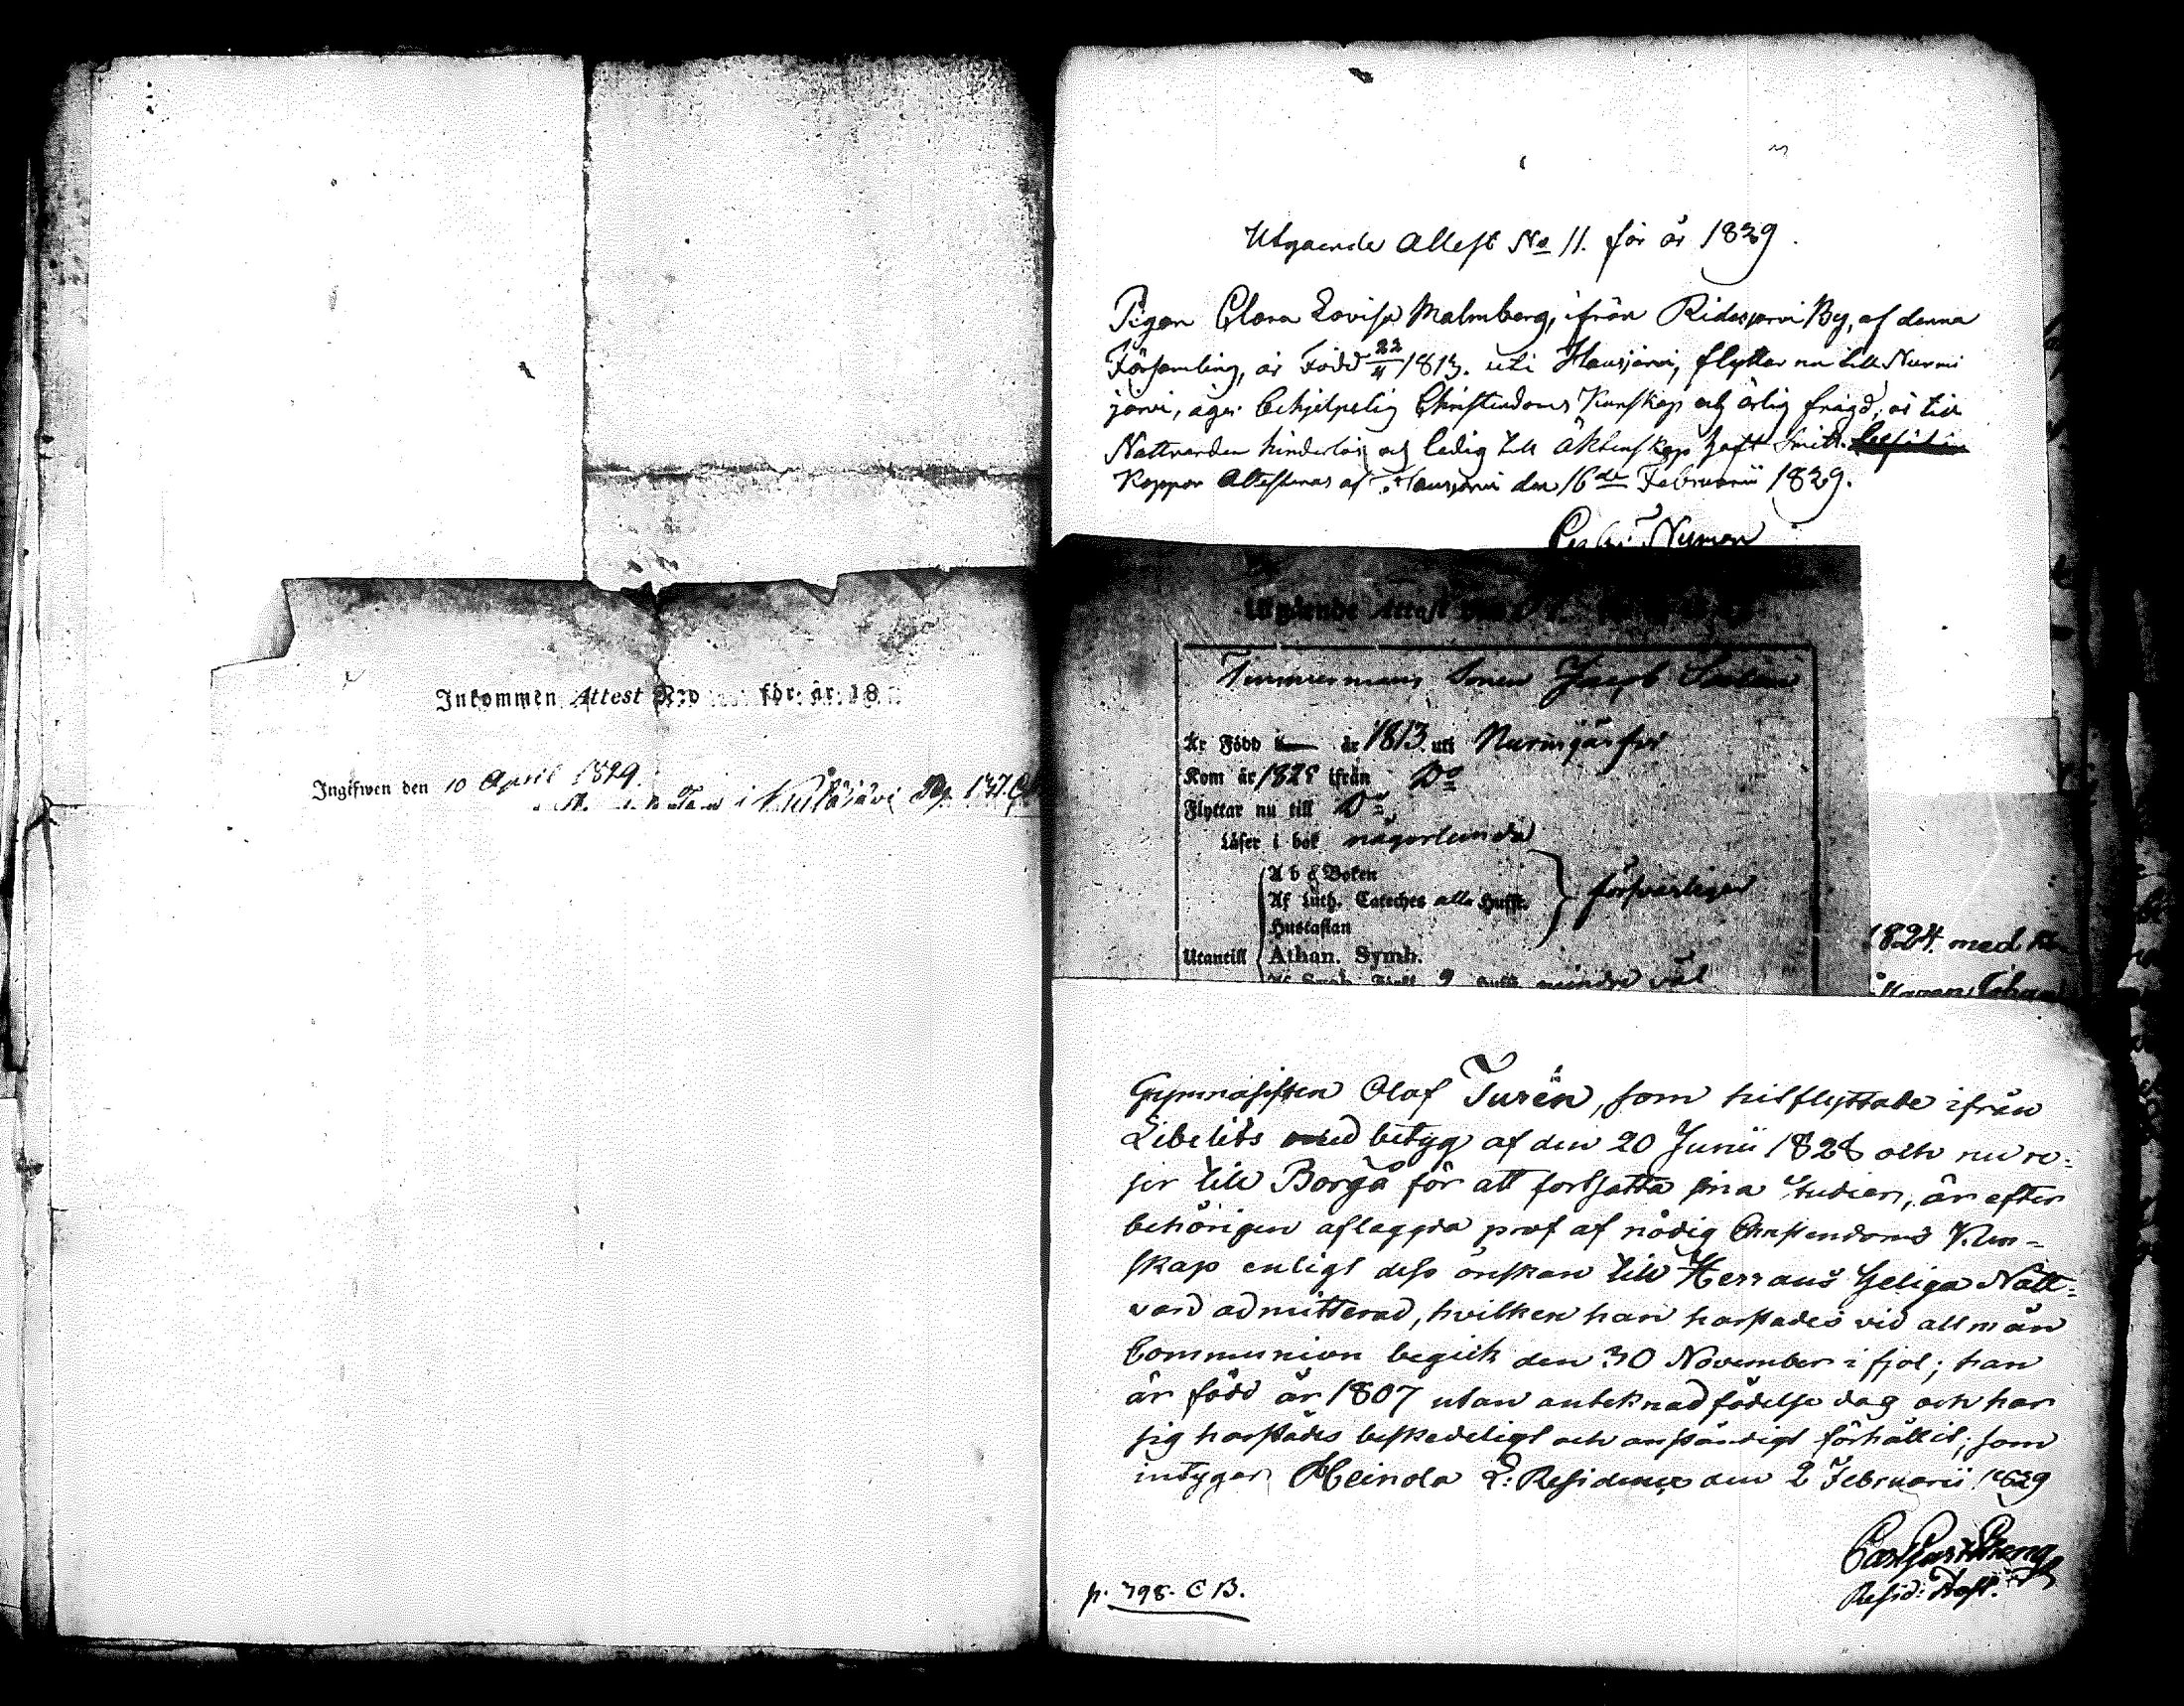 Inkommen Attest N:o för år 18
Ingifwen den 10 April 1829.
i Kytäjärvi Pag. 137.
Utgaende Attest No 11. för år 1829.
Pigan Clara Lovisa Malmberg, ifrån Ridasjervi By, af denna
Församling, är Född 22/4 1813. uti Hausjärvi, flyttar nu till Nurmi
järvi, äger behjelpelig Christendoms Kunskap och ärlig frägd, är till
Nattvarden hinderlös och ledig till äktenskap haft Smitt
Koppor Attesteras af Hausjärvi den 16de Februarii 1829.
Numen
Utgående Attest
Timmermans Sonen Jacob
Är Född år 1813 uti Nurmijärfvi
Kom år 1828 ifrån Do
Flyttar nu till Do
Läser i bok någorlunda
A b c Boken
Af Luth. Cateches alla Hufst. försvarligen
Hustaflan
Utantill Athan. Symb.
mindre väl
1824. med
Gymnasisten Olaf Turén, som hitflyttade ifrån
Libelits med betyg af den 20 Junii 1828 och nu re-
ser till Borgå för att fortsätta sina Studier, är efter
behörigen aflaggda prof af nödig Christendoms Kun-
skap enligt dess önskan till Herrans Heliga Natt-
vard admitterad, hvilken han härstädes vid allmän
Communion begick den 30 November i fjol; han
är född år 1807 utan anteknad födelse dag och har
sig härstädes beskedeligt och anständigt förhållit, som
intygar Heinola L: Residence den 2 Februarii 1829
Carl Gust.
Resid: Past.
p. 798. C B.